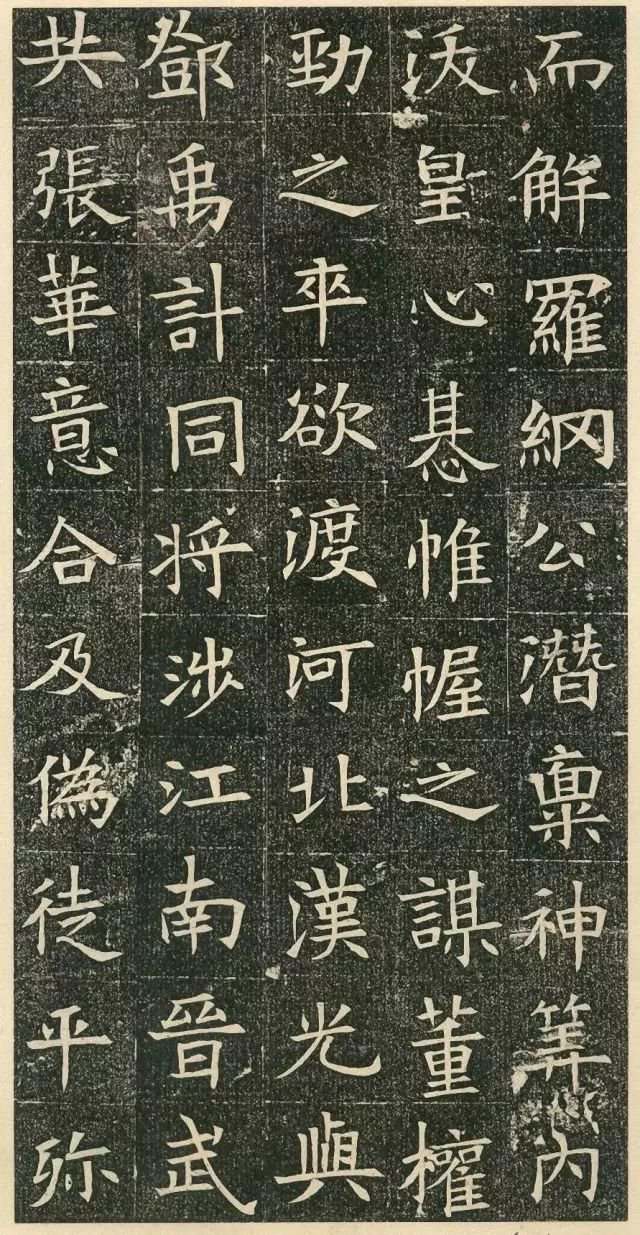 而解羅網公潛稟神筭内
沃皇心惎帷幄之謀董權
勁之卒欲渡河北漢光與
鄧禹計同將涉江南晉武
共張華意合及偽徒平殄